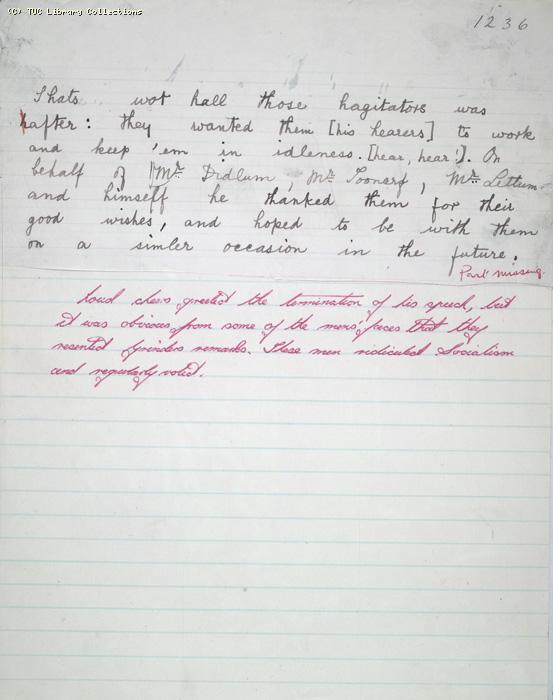 (C) TUC Library Collections
1236
Thats wot hall those hagitators was
hafter: they wanted them [his hearers] to work
and keep 'em in idleness. [hear, hear!]. On
behalf of Mr. Didlum, Mr. Toonarf, Mr. Lettum
and himself he thanked them for their
good wishes, and hoped to be with them
on a simler occasion in the future.
Part missing.
Loud cheers greeted the termination of his speech, but
it was obvious from some of the mens' faces that they
resented Grinders remarks. These men ridiculed Socialism
and regularly voted.